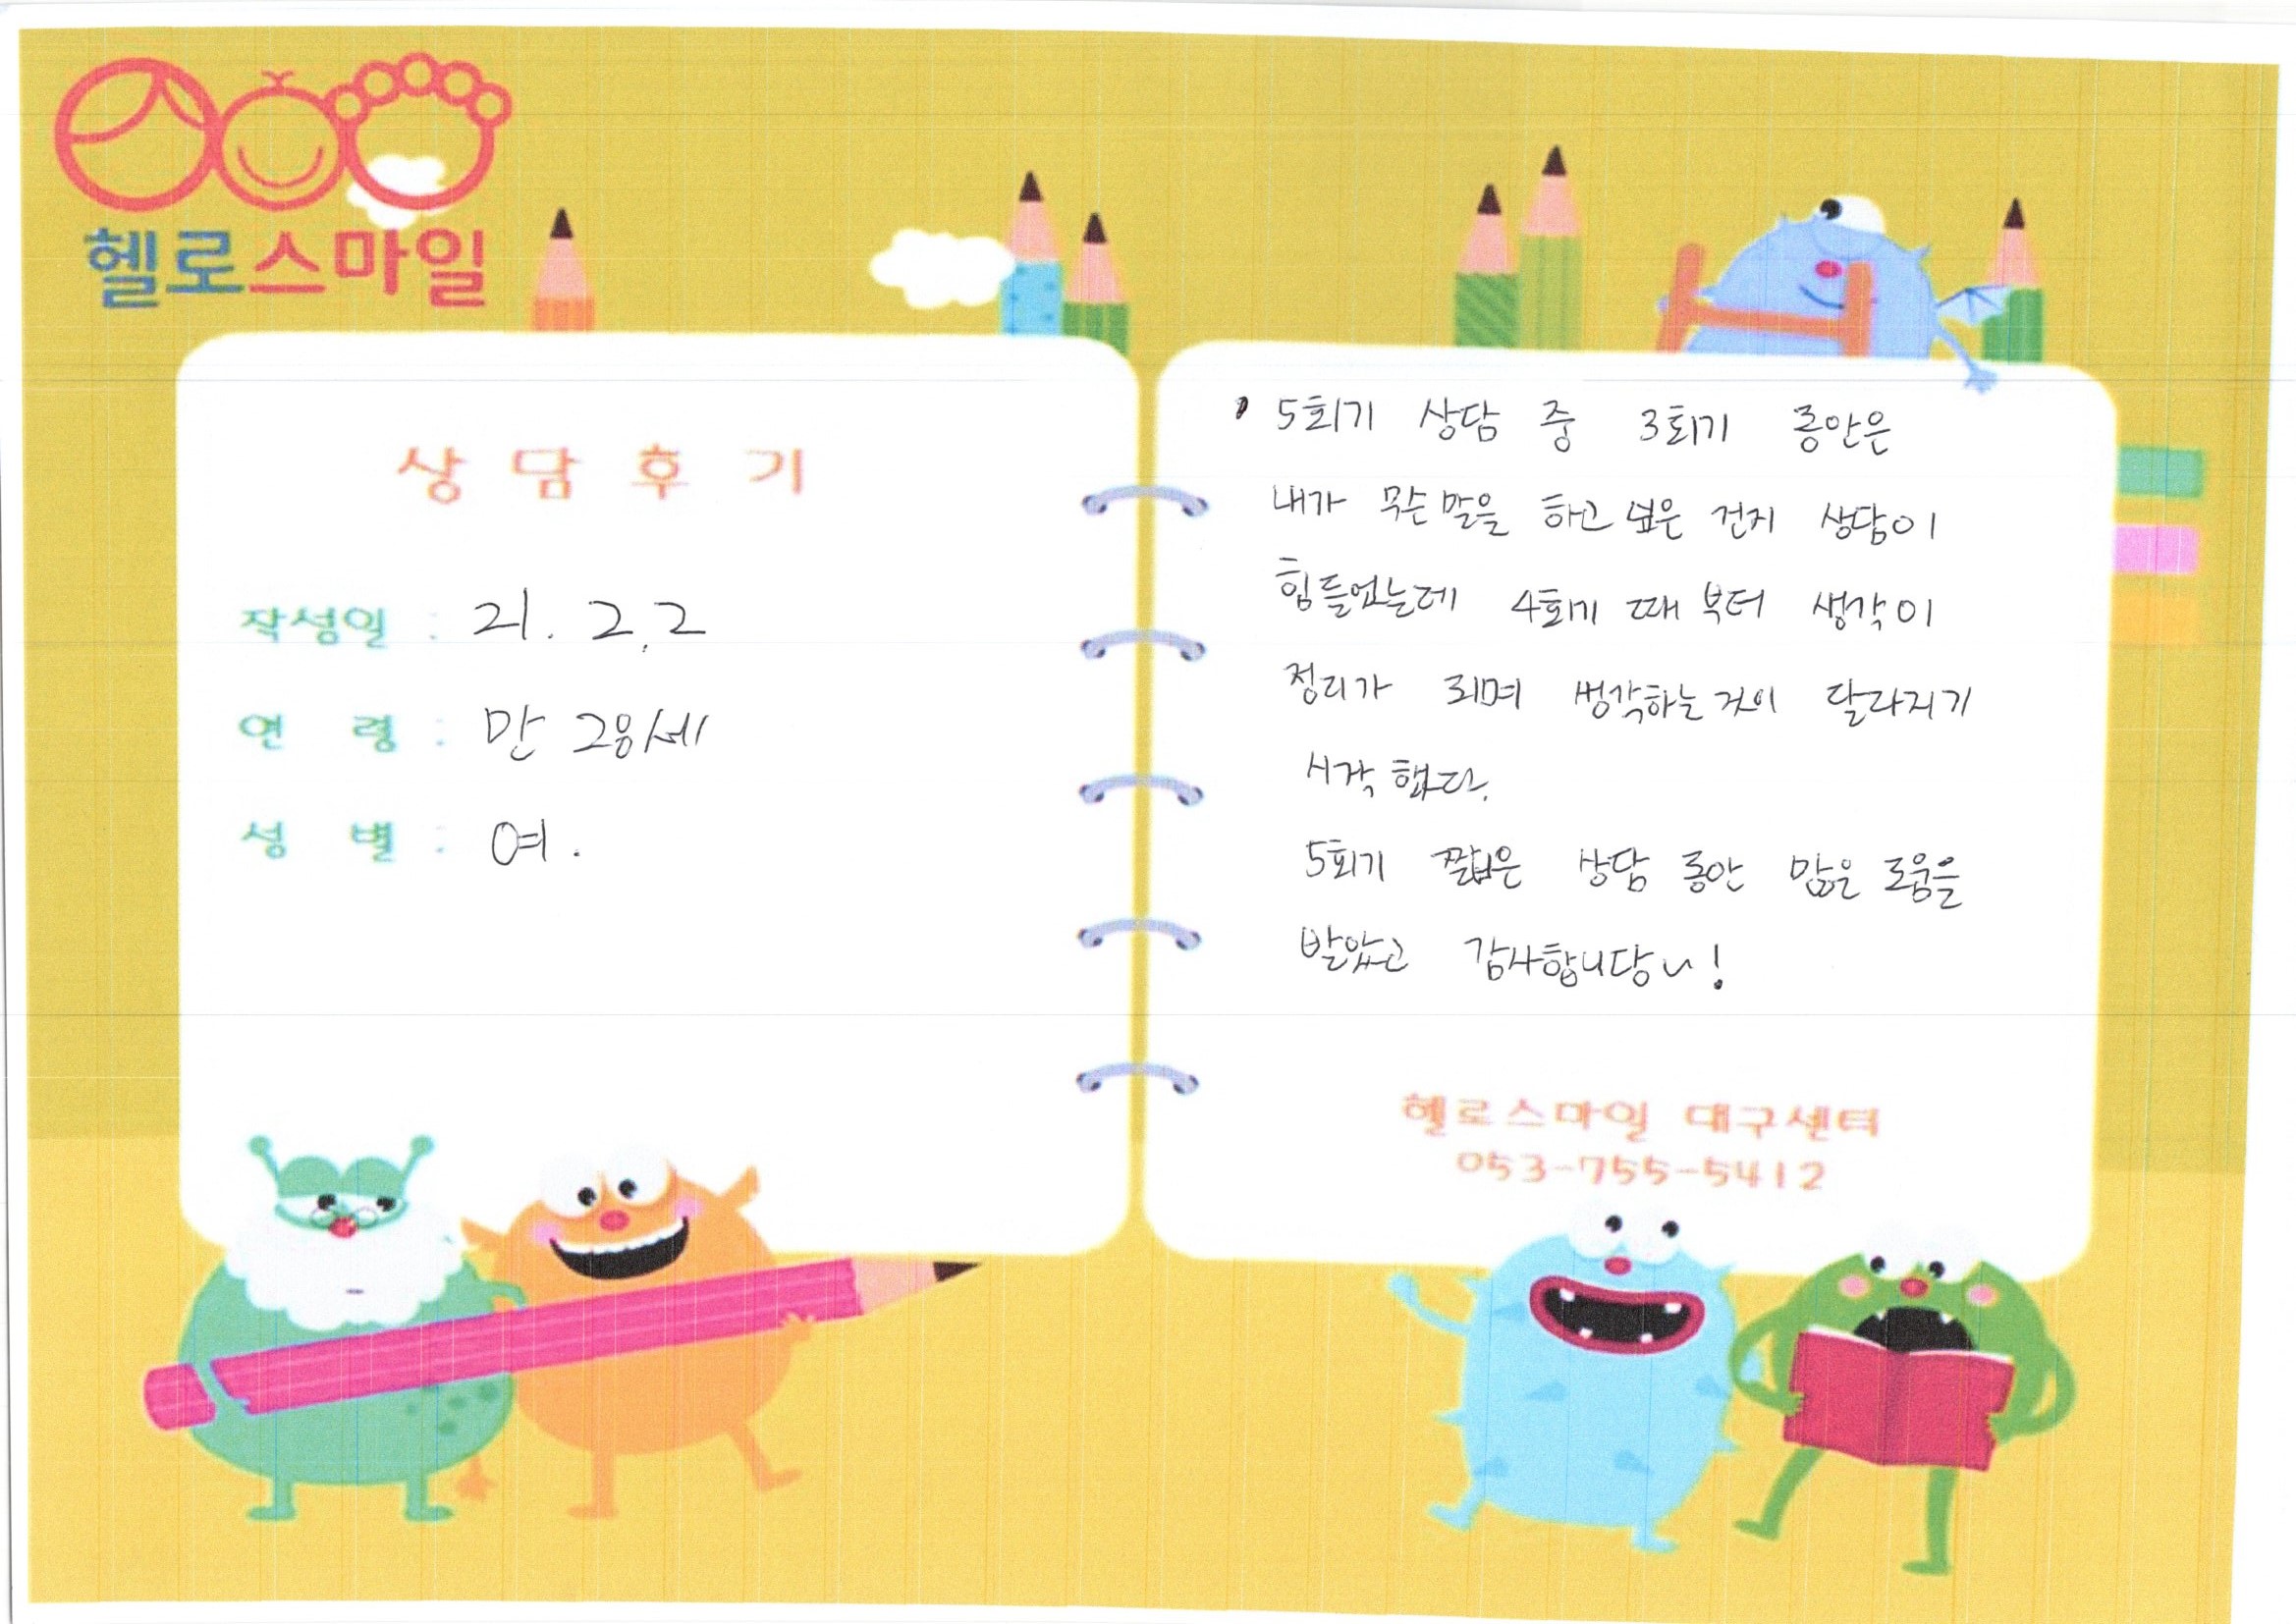 헬로스마일
상담후기
작성일 : 21. 2. 2
연 령 : 만 28세
성 별 : 여.
5회기 상담 중 3회기 동안은
내가 무슨 말을 하고 싶은 건지 상담이
힘들었는데 4회기 때 부터 생각이
정리가 되며 생각하는 것이 달라지기
시작 했다.
5회기 짧은 상담 동안 많은 도움을
받았고 감사합니당~!
헬로스마일 대구센터
053-755-5412